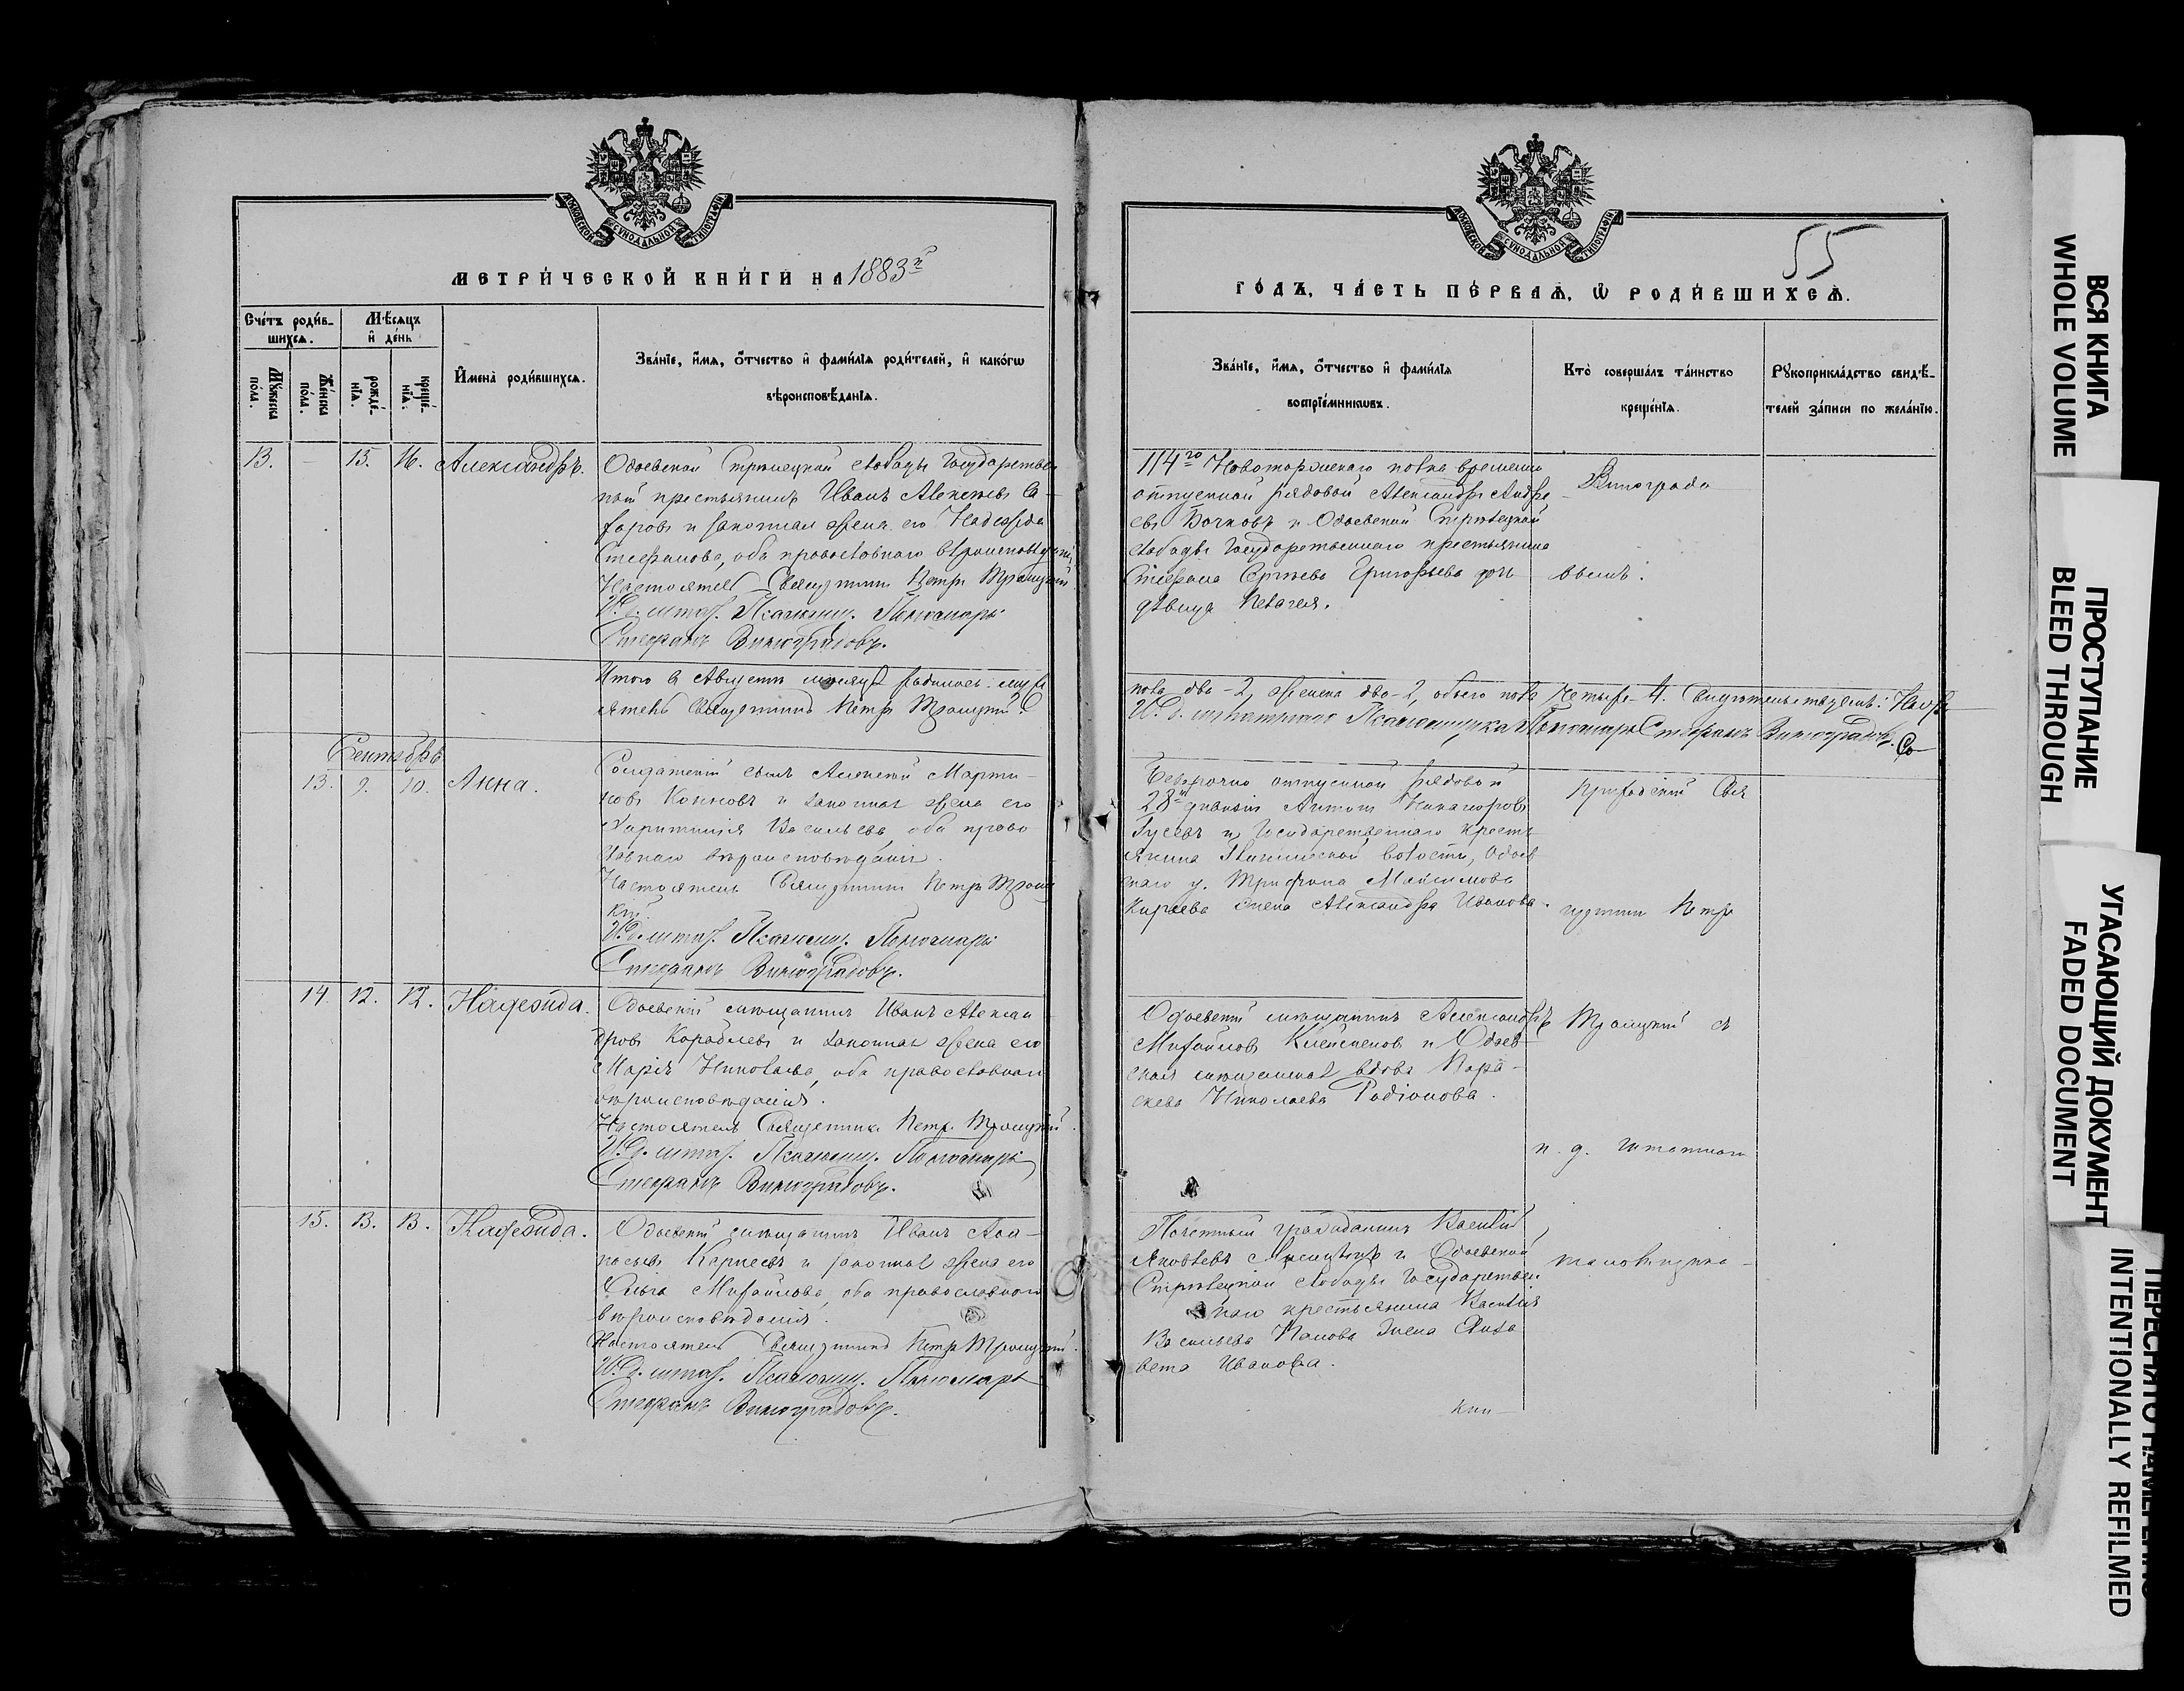 МОСКОВСКОЙ СУНОДАЛЬНОЙ ТИПОГРАФІИ
МЕТРИ́ЧЕСКОЙ КНИ́ГИ НА 1883 г.
Сче́тъ роди́в-
шихсѧ.
Мѣ́сѧцъ
и҆ де́нь
Мꙋ́жеска
по́ла.
Же́нска
по́ла.
рожде́-
нїѧ.
креще́-
нїѧ.
И҆мена̀ роди́вшихсѧ.
Зва́нїе, и҆́мѧ, ѻ҆́тчество и҆ фами́лїѧ роди́телей, и҆ како́гѡ
вѣроисповѣ́данїѧ.
13. - 15. 16. Александръ.
Одоевской Стрѣлецкой слободы Государствен
ный крестьянинъ Иванъ Алексѣевъ
и законная жена его Надежда
Стефанова, оба православнаго вѣроисповѣданія
Настоятель Священникъ Петръ Троицкій
И.д. штат. Псаломщ. Пономарь
Стефанъ Виноградовъ.
Итого в Августѣ мѣсяцѣ родилось: муж
ятель Священникъ Петръ Троицкій
Сентябрь
13. 9. 10. Анна.
Солдатскій сынъ Алексѣй Марти-
новъ и законная жена его
Харитинія Васильева, оба право
славнаго вѣроисповѣданія.
Настоятель Священникъ Петръ Троиц
кій.
И.д. штат. Псаломщ. Пономарь
Стефанъ Виноградовъ.
14. 12. 12. Надежда.
Одоевскій мѣщанинъ Иванъ Алексан
дровъ Кораблевъ и законная жена его
Марія Николаева, оба православнаго
вѣроисповѣданія.
Настоятель Священникъ Петръ Троицкій.
И.д. штат. Псаломщ. Пономарь
Стефанъ Виноградовъ.
15. 13. 13. Надежда.
Одоевскій мѣщанинъ Иванъ Афа-
насьевъ Корнеевъ и законная жена его
Ольга Михайлова, оба православнаго
вѣроисповѣданія.
Настоятель Священникъ Петръ Троицкій.
И.д. штат. Псаломщ. Пономарь
Стефанъ Виноградовъ.
МОСКОВСКОЙ СУНОДАЛЬНОЙ ТИПОГРАФІИ
55
ГО́ДЪ, ЧА́СТЬ ПЕ́РВАѦ, Ѡ҆ РОДИ́ВШИХСѦ.
Зва́нїе, и҆́мѧ, ѻ҆́тчество и҆ фами́лїѧ
воспрїе́мниковъ.
Кто̀ соверша́лъ та́инство
креще́нїѧ.
Рꙋкоприкла́дство свидѣ́-
телей за́писи по жела́нїю.
114го Новоторжскаго полка временно
отпускной рядовой Александръ Андре-
евъ Бочковъ и Одоевской Стрѣлецкой
слободы Государственнаго крестьянина
Стефана Сергѣева Григорьева дочь
дѣвица Пелагея.
Виноградо
вымъ.
пола два-2, женска два-2, обоего пола четыре-4. Свидѣтельствуемъ: Насто
И.д. штатнаго Псаломщика Пономарь Стефанъ Виноградовъ.
Безсрочно отпускной рядовой
28й дивизіи Антонъ Никаноровъ
Гусевъ и Государственнаго кресть
янина волости, Одоев
скаго у. Трифона Максимова
Кирѣева жена Александра Иванова.
Приходскій Свя
щенникъ Петръ
Одоевскій мѣщанинъ Александръ
Михайловъ и Одоев
ская мѣщанская вдова Пара-
скева Николаева Родіонова.
Троицкій съ
и. д. штатнаго
Почетный гражданинъ Василій
Яковлевъ и Одоевской
Стрѣлецкой слободы Государствен
наго крестьянина Василія
Васильева Панова жена Елиза
вета Иванова.
псаломщика
ВСЯ КНИГА
WHOLE VOLUME
ПРОСТУПАНИЕ
BLEED THROUGH
УГАСАЮЩИЙ ДОКУМЕНТ
FADED DOCUMENT
ПЕРЕСНЯТО НАМЕРЕННО
INTENTIONALLY REFILMED